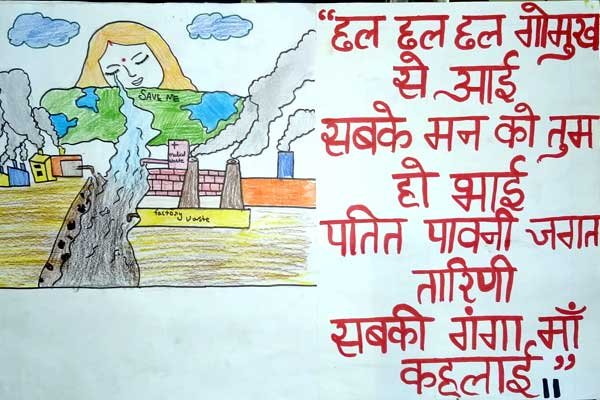 SAVE ME
factory waste
“ढल ढल ढल गोमुख
से आई
सबके मन को तुम
हो भाई
पतित पावनी जगत
तारिणी
सबकी गंगा माँ
कहलाई”॥